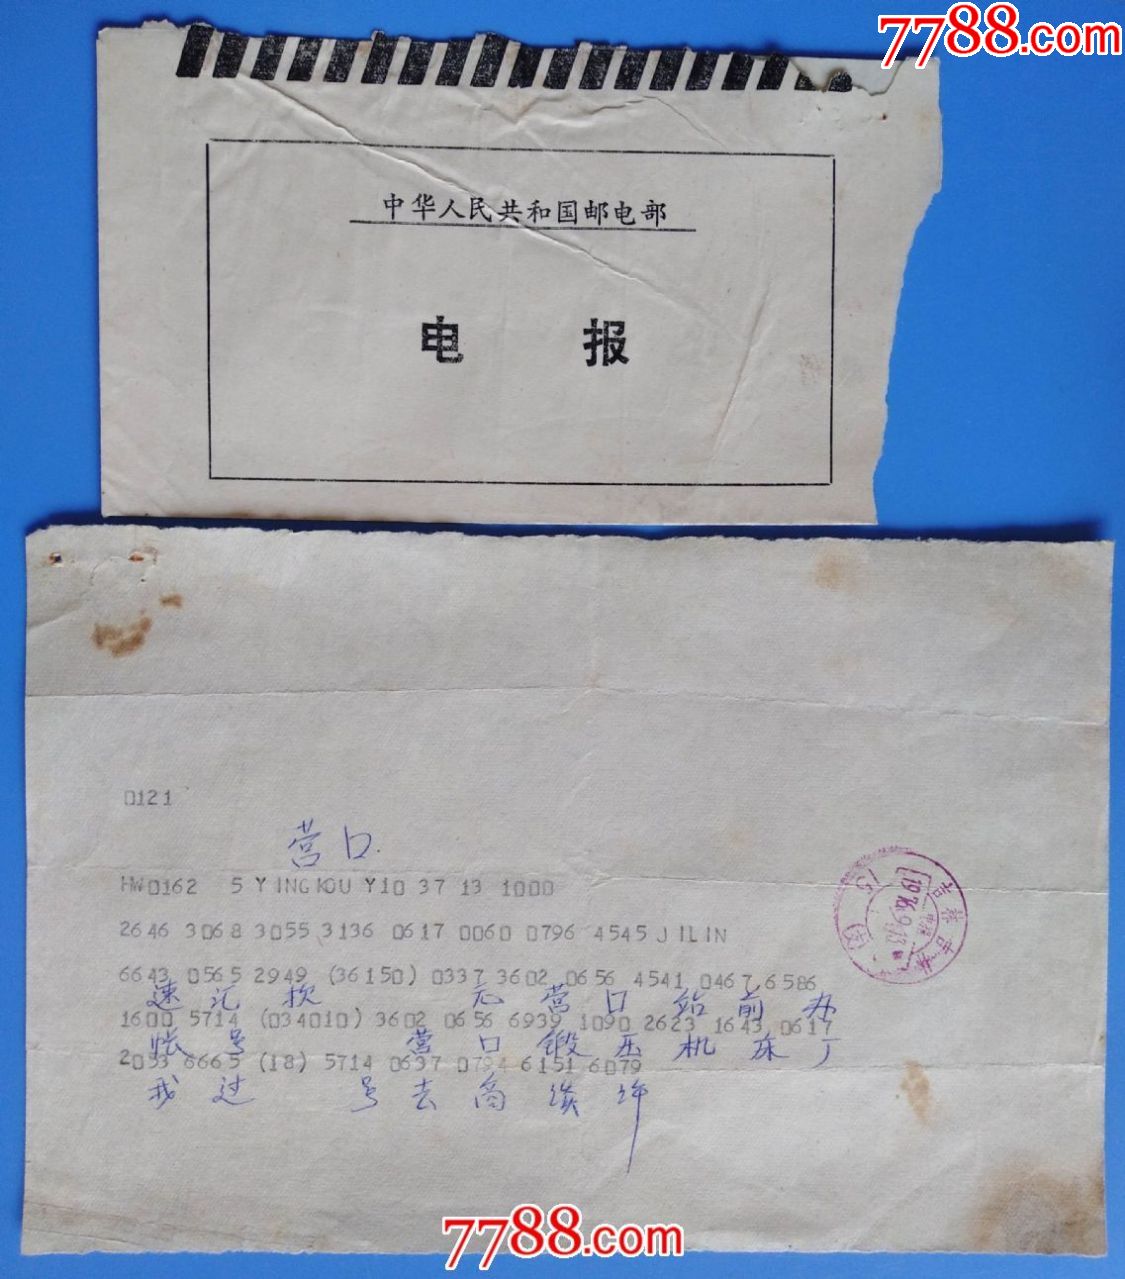 7788.com
中华人民共和国邮电部
电报
0121
营口
HW0162 5 YINGKOU Y10 37 13 1000
2646 3068 3055 3136 0617 0060 0796 4545 JILIN
6643 0565 2949 (36150) 0337 3602 0656 4541 0467 6586
速汇款 元营口站前办
1600 5714 (034010) 3602 0656 6939 1090 2623 1643 0617
帐号 营口锻压机床厂
2053 6665 (18) 5714 0637 0794 6151 6079
我过 号去商谈
吉林吉林
1976.9.13
15
7788.com